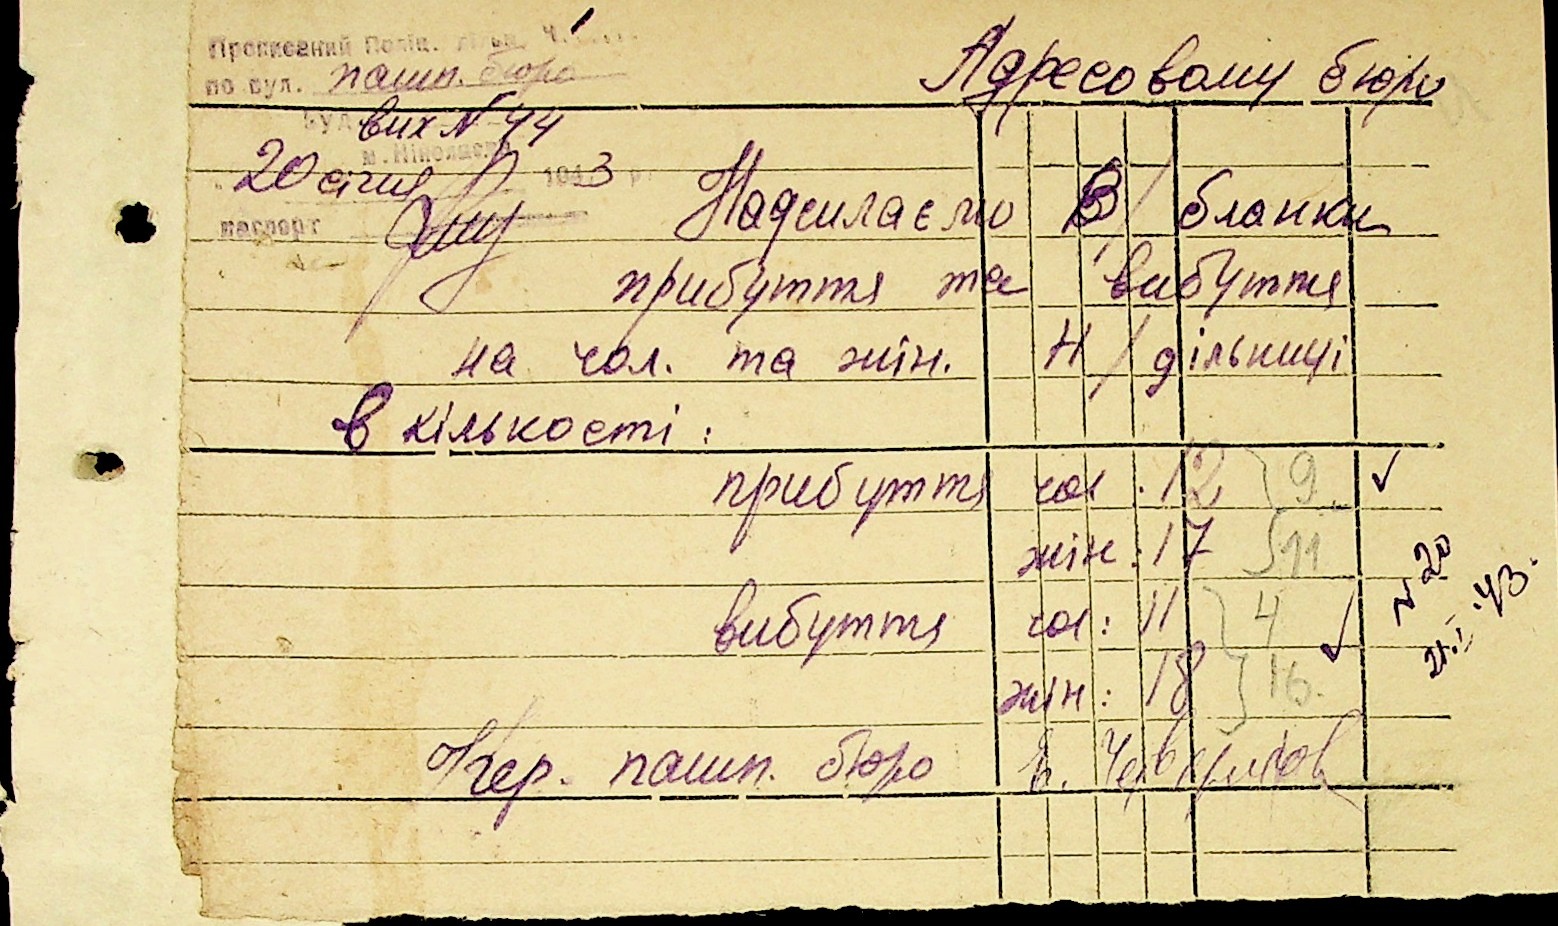 Поліц. дільн. Ч. 1
по вул. пашп. бюро
Адресовому бюро
Буд. вих N 44
м. Ніколаєв
20 січня 1943 р.
паспорт
Надсилаємо В/ бланки
прибуття та вибуття
на чол. та жін. Н/дільниці
в кількості:
прибуття чол. 12 } 9 ✓
жін: 17 } 11
вибуття чол: 11 } 4 ✓
жін: 18 } 16.
N 20
21.I.43.
Кер. пашп. бюро